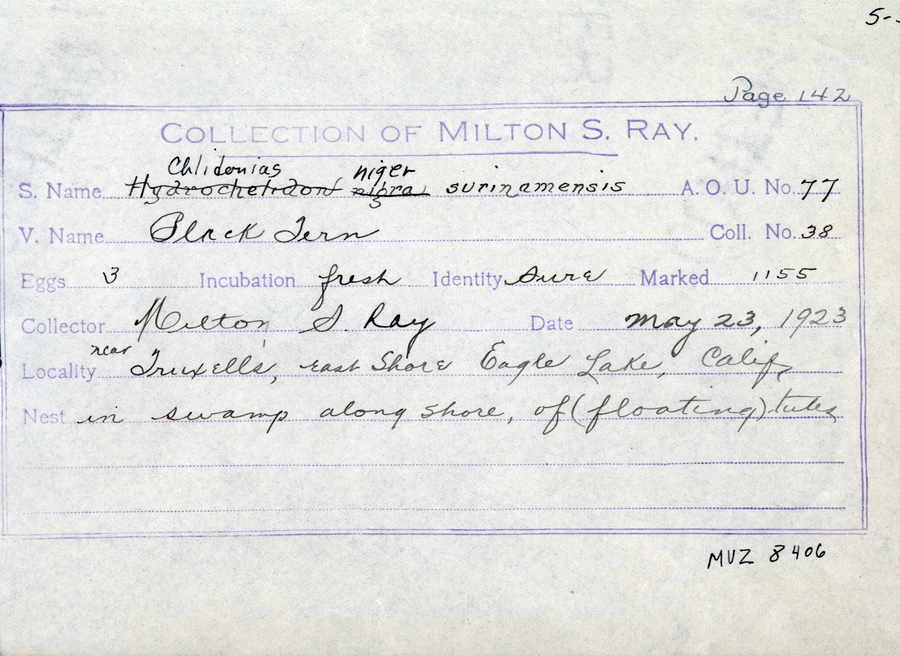 5-
Page 142
COLLECTION OF MILTON S. RAY.
Chlidonias niger
S. Name Hydrochelidon nigra surinamensis A. O. U. No. 77
V. Name Black Tern Coll. No. 38
Eggs 3 Incubation fresh Identity Sure Marked 1155
Collector Milton S. Ray Date May 23, 1923
near
Locality Truxell's, east Shore Eagle Lake, Calif,
Nest in swamp along shore, of (floating) tules
MVZ 8406